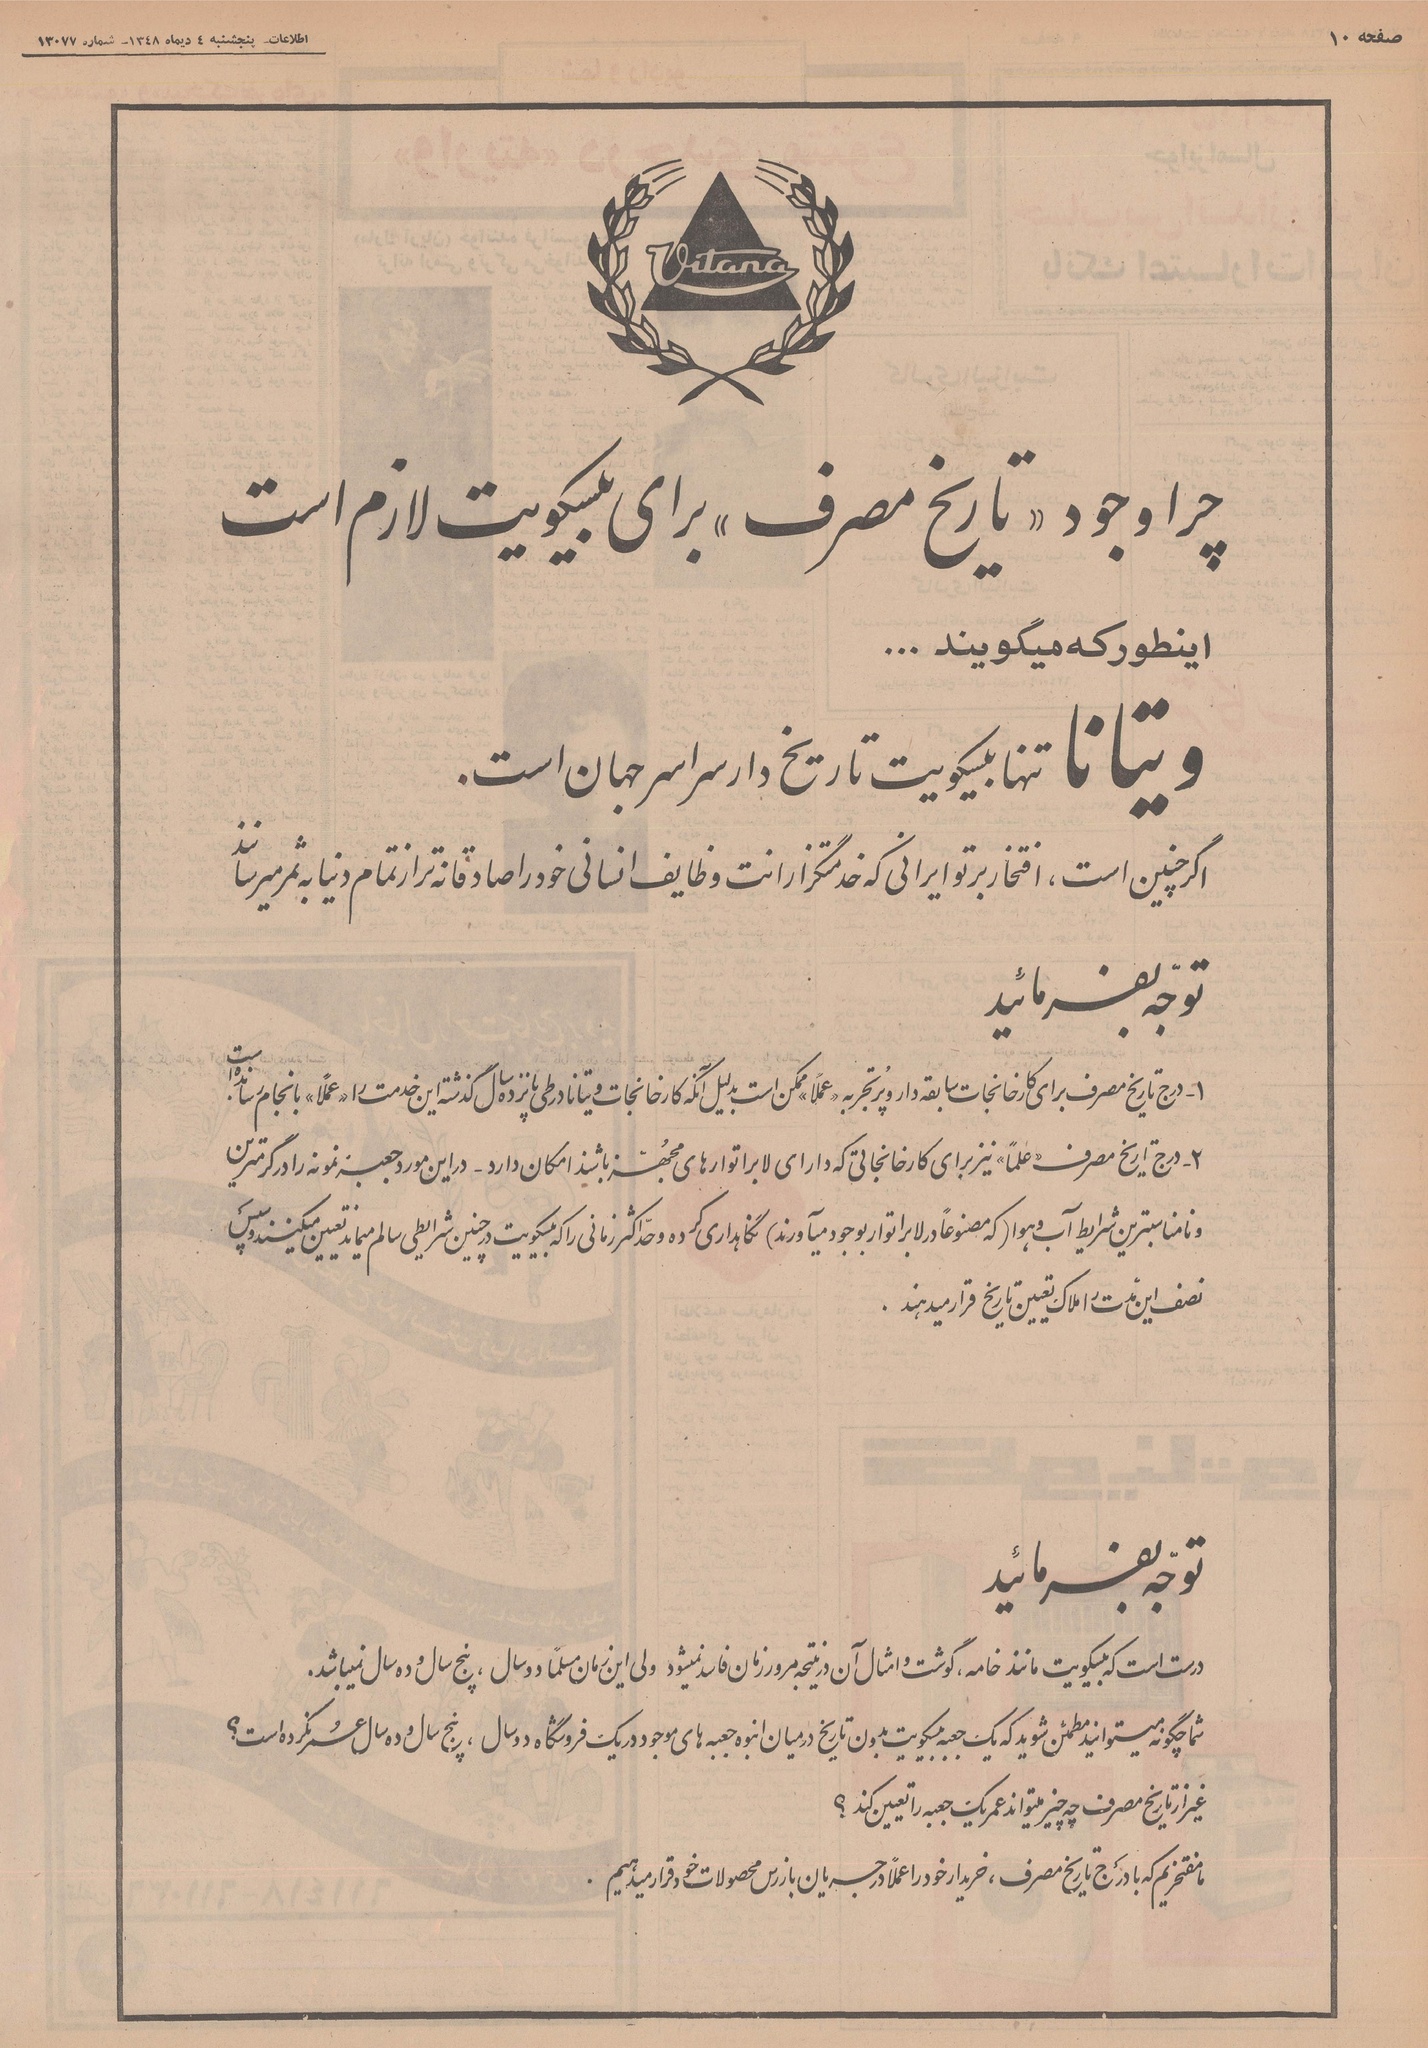 صفحه ۱۰
اطلاعات- پنجشنبه ٤ دیماه ۱۳٤۸- شماره ۱۳۰۷۷
Vitana
چرا وجود «تاریخ مصرف» برای بیسکویت لازم است
اینطور که میگویند ...
ویتانا تنها بیسکویت تاریخ دار سراسر جهان است.
اگر چنین است، افتخار بر تو ایرانی که خدمتگزارانت وظایف انسانی خود را صادقانه تر از تمام دنیا به ثمر میرسانند
توجّه بفرمائید
۱- درج تاریخ مصرف برای کارخانجات سابقه دار و پُر تجربه «عملاً» ممکن است بدلیل آنکه کارخانجات ویتانا در طی پانزده سال گذشته این خدمت را «عملاً» بانجام رسانده است.
۲- درج تاریخ مصرف «علماً» نیز برای کارخانجاتی که دارای لابراتوارهای مجهّز باشند امکان دارد - در این مورد جعبه نمونه را در گرمترین
و نامناسبترین شرایط آب و هوا (که مصنوعاً در لابراتوار بوجود میآورند) نگاهداری کرده و حدّاکثر زمانی را که بیسکویت در چنین شرایطی سالم میماند تعیین میکنند و سپس
نصف این مدّت را ملاک تعیین تاریخ قرار میدهند .
توجّه بفرمائید
درست است که بیسکویت مانند خامه، گوشت و امثال آن در نتیجه مرور زمان فاسد نمیشود ولی این زمان مسلّماً دو سال ، پنج سال و ده سال نمیباشد.
شما چگونه میتوانید مطمئن شوید که یک جعبه بیسکویت بدون تاریخ در میان انبوه جعبه های موجود در یک فروشگاه دو سال ، پنج سال و ده سال عمر نکرده است؟
غیر از تاریخ مصرف چه چیز میتواند عمر یک جعبه را تعیین کند ؟
ما مفتخریم که با درج تاریخ مصرف ، خریدار خود را عملاً در جریان بازرس محصولات خود قرار میدهیم .